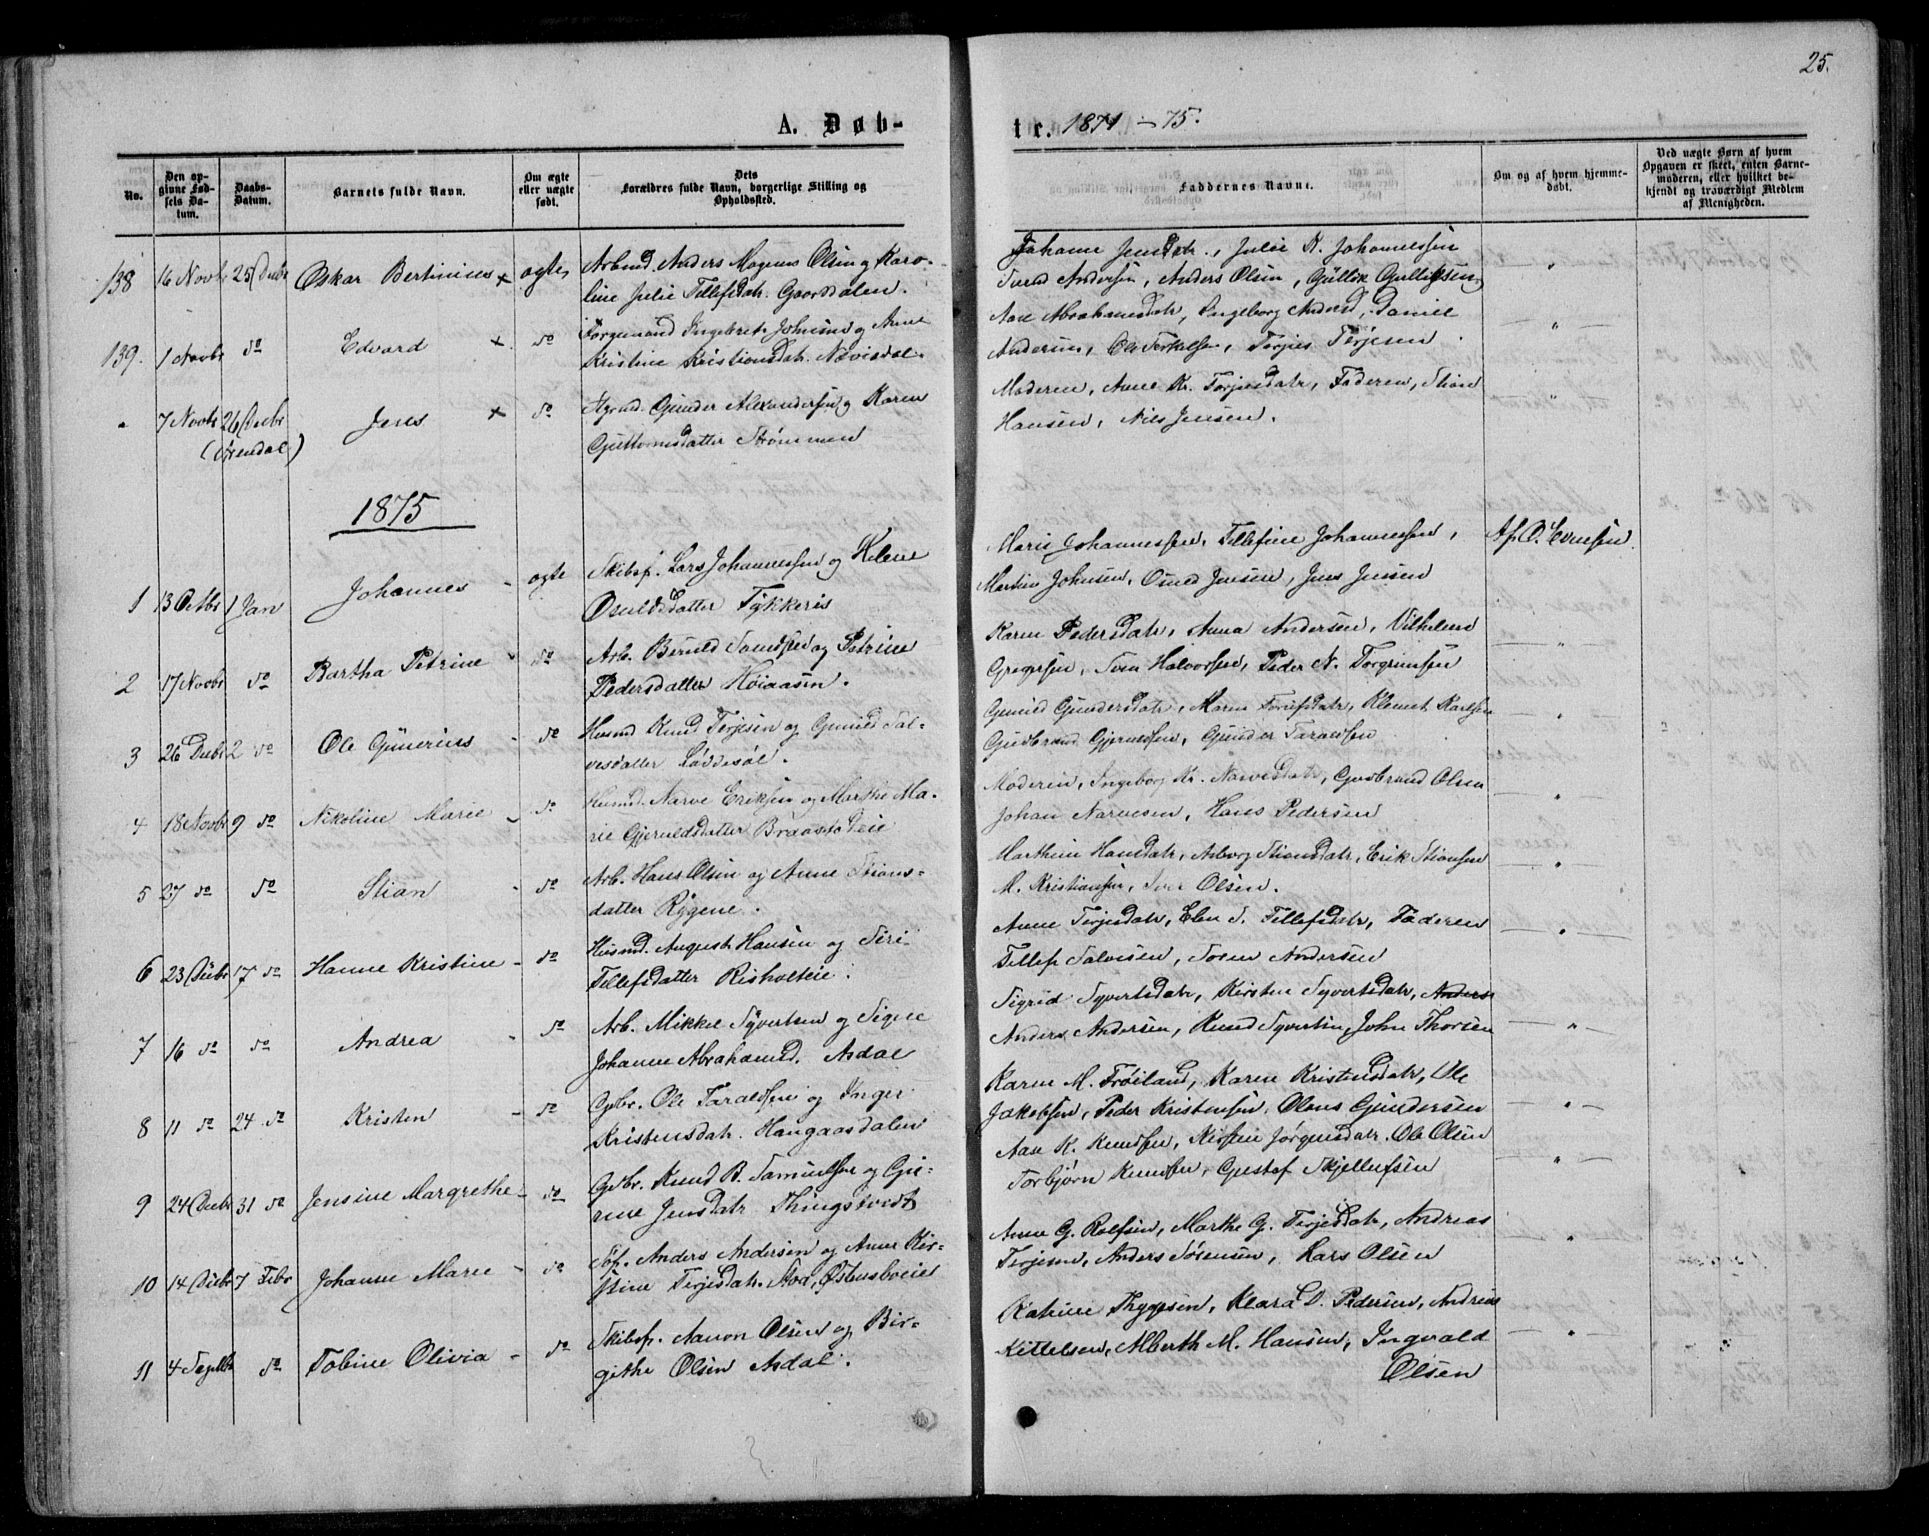 25.
A. Døb-
te. 1874 - 75.
No.
Den op-
givne Fød-
sels Da-
tum.
Daabs-
Datum.
Barnets fulde Navn.
Om ægte
eller uægte
født.
Dets
Forældres fulde Navn, borgerlige Stilling og
Opholdssted.
Faddernes Navne.
Om og af hvem hjemme-
døbt.
Ved uægte Børn af hvem
Opgaven er skeet, enten Barne-
moderen, eller hvilket be-
kjendt og troværdigt Medlem
af Menigheden.
138 16 Novbr 25 Decbr Oskar Bertinius x ægte Anders Magnus Olsen og Karo-
line Julie Tellefsdatr. Gaasdalen.
Johanne Jensdatr., Julie K. Johannessen
Tvend Andersen, Anders Olsen, Gullik Gulliksen
139. 1 Novbr do Edvard x do Ingebret Johnsen og Anne
Kristine Kristiansdatr.
Aase Abrahamsdatr, Ingeborg Andersd, Daniel
Andersen, Ole Terkelsen, Terjes Terjesen
" 7 Novbr 26 Decbr Jens x do Gunder Alexandersen og Karen
(Arendal) Guttormsdatter Strømmen
Moderen, Anne Kr. Torjusdatr, Faderen, Stian
Hansen, Nils Jensen.
1875
1 13 Octbr 1 Jan Johannes - ægte Skibsf. Lars Johannessen og Helene
Osuldsdatter Tykkeris
Marie Johannessen, Tellefine Johannessen, Af O. Evensen.
Martin Johnsen, Osmd Jensen, Jens Jensen
2 17 Novbr do Bartha Petrine - do Arb. Berulf og Petrine
Pedersdatter Høiaasen.
Karen Pedersdatr, Anna Andersen, Vilhelm
Gregersen, Sven Halvorsen, Peder N. Torgrimsen
3 26 Decbr 2 do Ole Gunerius - do Husmd Knud Terjesen og Gunild Sal-
vesdatter Løddesøl.
Gunild Gundersdatr, Maren Torufsdatr, Klemet Karlsen
Gudbrand Gjeruldsen, Gunder Taraldsen
4 18 Novbr 9 do Nikoline Marie - do Husmd. Narve Eriksen og Marthe Ma-
rie Gjeruldsdatter Braastadeie
Moderen, Ingeborg Kr. Narvesdatr, Gudbrand Olsen
Johan Narvesen, Hans Pedersen
5 27 do do Stian - do Arb. Hans Olsen og Anne Stians-
datter Rygene.
Marthine Hansdatr, Asborg Stiansdatr, Erik Stiansen
M. Kristiansen, Iver Olsen.
6 23 Decbr 17 do Hanne Kristine - do Husmd. August Hansen og Siri
Tellefsdatter Risholteie.
Anne Terjesdatr, Elen S. Tellefsdatr, Faderen
Tellef Salvesen, Soren Andersen
7 16 do do Andrea - do Arb. Mikkel Syvertsen og Signe
Johanne Abrahamsd. Asdal
Sigrid Syvertsdatr, Kirsten Syvertsdatr, Anders
Anders Andersen, Knud Syvertsen, John Thorsen
8 11 do 24 do Kristen - do Gbr. Ole Taraldsen og Inger
Kristensdatr. Haugaasdalen
Karen M. Frøiland, Karen Kristensdatr, Ole
Jakobsen, Peder Kristensen, Olaus Gundersen
9 24 Decbr 31 do Jensine Margrethe - do Gbr. Knud B. Samuelsen og Gu-
rine Jensdatr Thingstvedt
Aase K. Knudsen, Kirstine Jørgensdatr. Ole Olsen
Torbjørn Knudsen, Gustaf Skjellufsen
10 14 Decbr 7 Febr Johanne Marie - do Søf. Anders Andersen og Anne Kir-
stine Terjesdatr. Stoa, Østensbueie
Anne G. Rolfsen, Marthe G. Terjesdatr, Andreas
Terjesen, Anders Sørensen, Lars Olsen
11 4 Septbr do Tobine Olivia - do Skibsf. Aanon Olsen og Bir-
githe Olsen Asdal.
Katrine Thygesen, Klara D. Pedersen, Andreas
Kittelsen, Alberth M. Hansen, Ingvald
Olsen